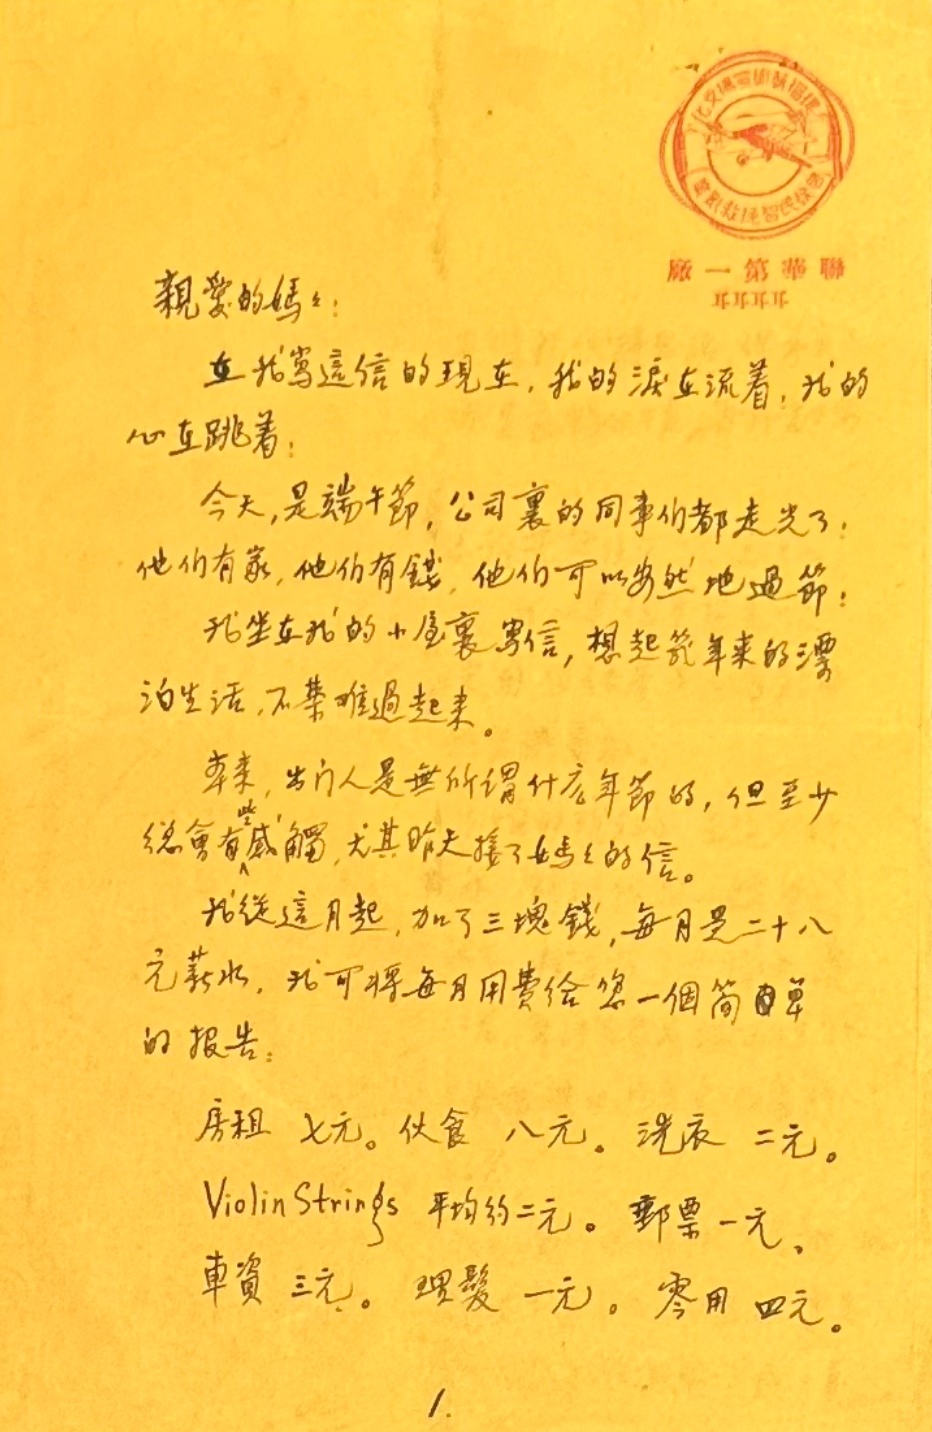 廠一第華聯
親愛的媽〻：
在我寫這信的現在，我的淚在流着，我的
心在跳着：
今天，是端午節，公司裏的同事们都走光了：
他们有家，他们有錢，他们可以安然地過節：
我坐在我的小屋裏寫信，想起幾年来的漂
泊生活，不禁难過起来。
本来，出门人是無所谓什麽年節的，但至少
總會有些感觸，尤其昨天接了媽〻的信。
我從這月起，加了三塊錢，每月是二十八
元薪水，我可將每月用費给您一個简單
的报告：
房租 七元。伙食 八元。洗衣 二元。
Violin Strings 平均约二元。郵票一元、
車資 三元。理髮 一元。零用 四元。
1.